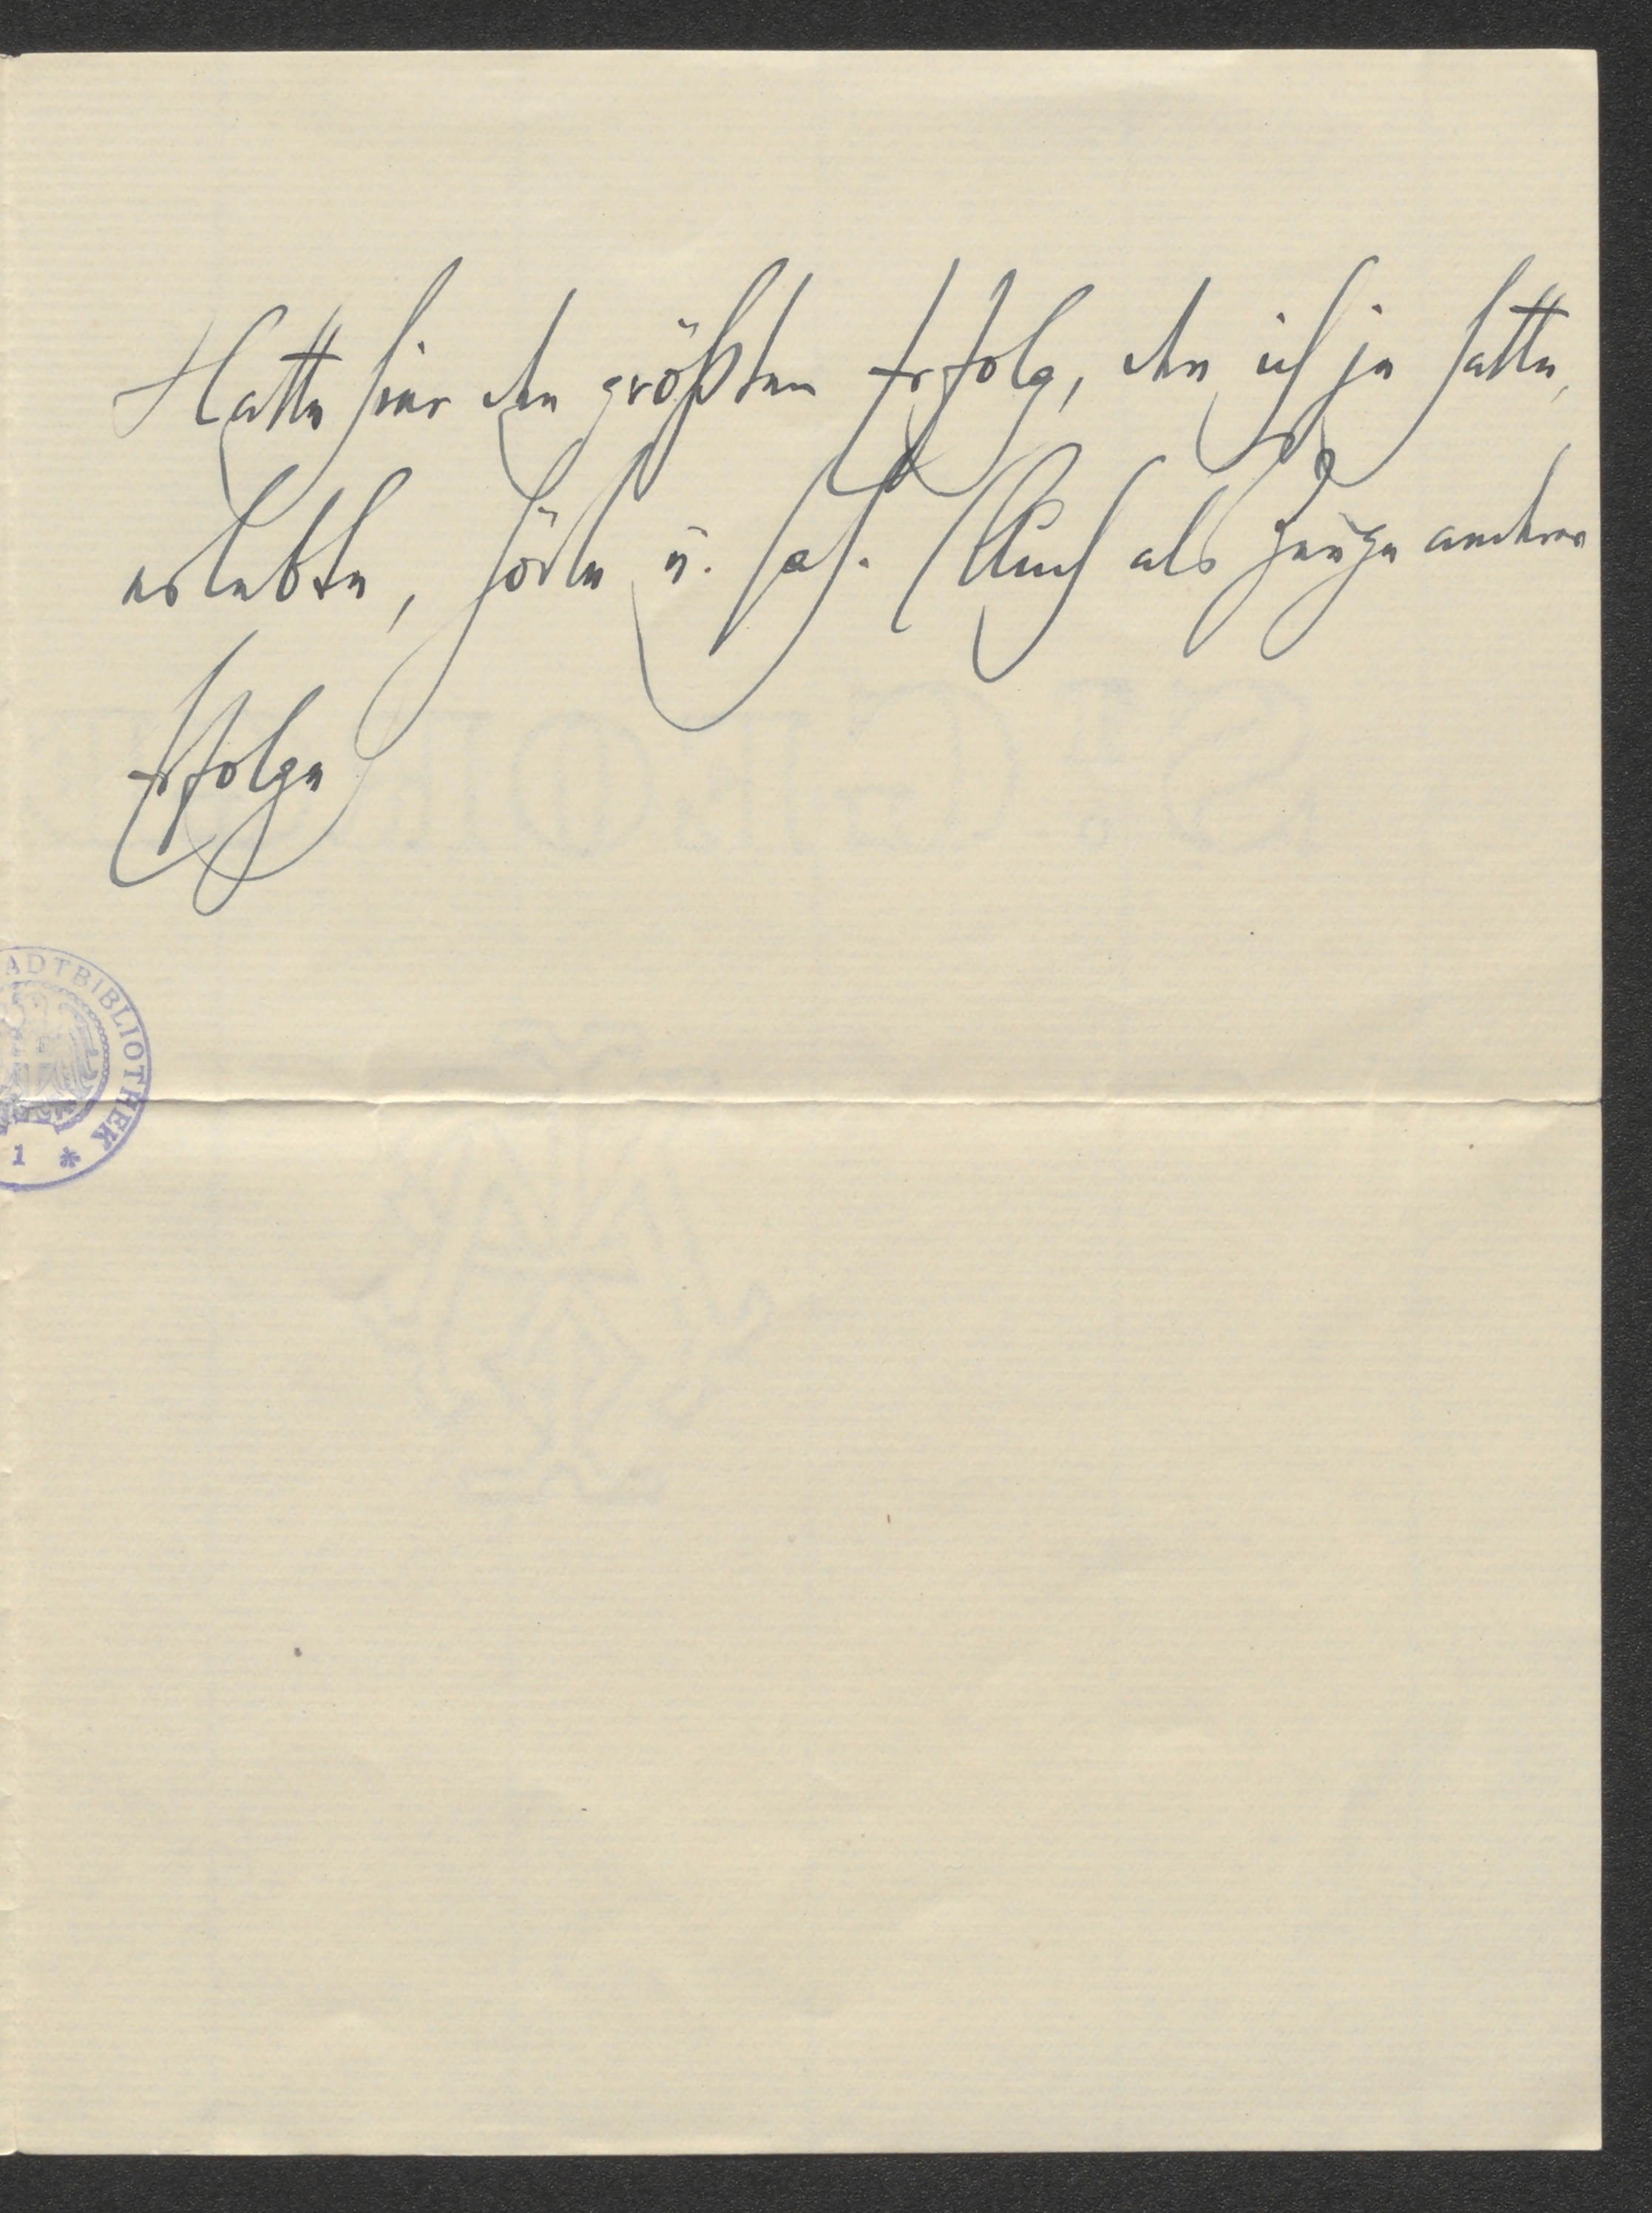 Hatte hier den größten Erfolg, den ich je hatte,
erlebte, hörte u. sah. Auch als Zeuge anderer
Erfolge
ADTBIBLIOTHEK
1 *